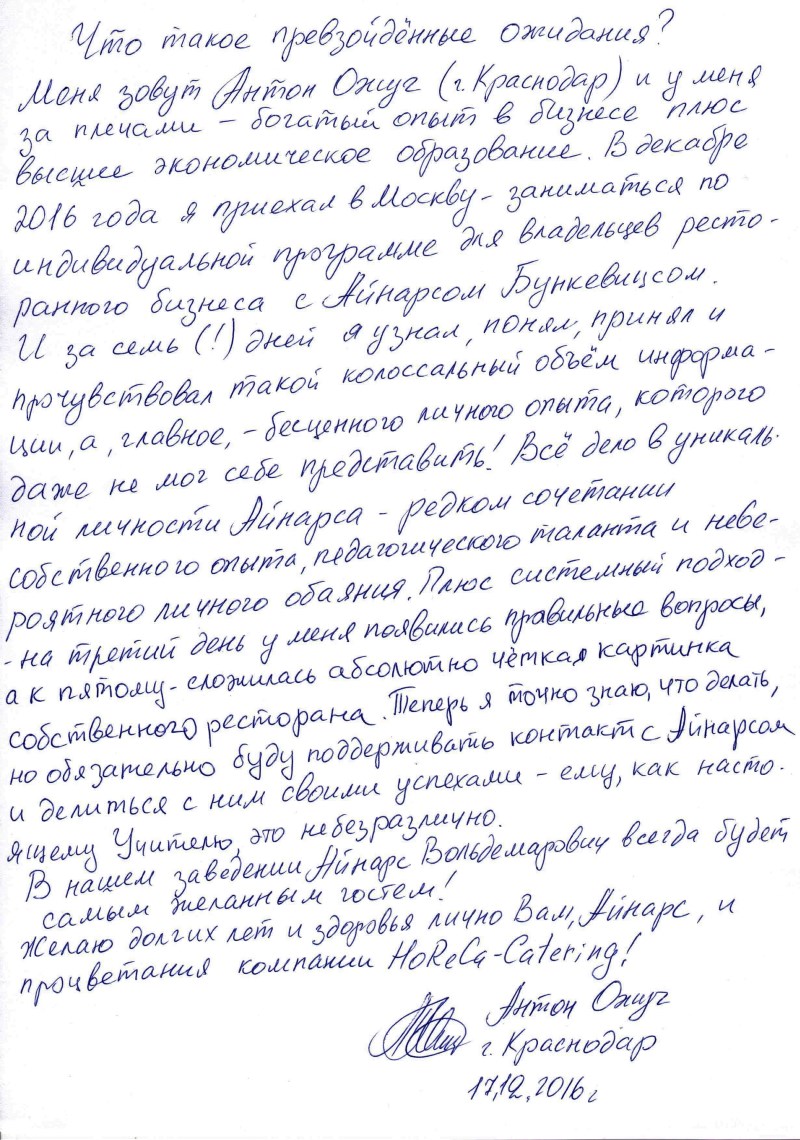 Что такое превзойдённые ожидания?
Меня зовут Антон Ожуг (г. Краснодар) и у меня
за плечами – богатый опыт в бизнесе плюс
высшее экономическое образование. В декабре
2016 года я приехал в Москву – заниматься по
индивидуальной программе для владельцев ресто-
ранного бизнеса с Айнарсом Бункевицсом.
И за семь (!) дней я узнал, понял, принял и
прочувствовал такой колоссальный объём информа-
ции, а, главное, – бесценного личного опыта, которого
даже не мог себе представить! Всё дело в уникаль-
ной личности Айнарса – редком сочетании
собственного опыта, педагогического таланта и неве-
роятного личного обаяния. Плюс системный подход –
- на третий день у меня появились правильные вопросы,
а к пятому – сложилась абсолютно чёткая картинка
собственного ресторана. Теперь я точно знаю, что делать,
но обязательно буду поддерживать контакт с Айнарсом
и делиться с ним своими успехами – ему, как насто-
ящему Учителю, это небезразлично.
В нашем заведении Айнарс Вольдемарович всегда будет
самым желанным гостем!
Желаю долгих лет и здоровья лично Вам, Айнарс, и
процветания компании HoReCa-Catering!
Антон Ожуг
г. Краснодар
17.12.2016 г